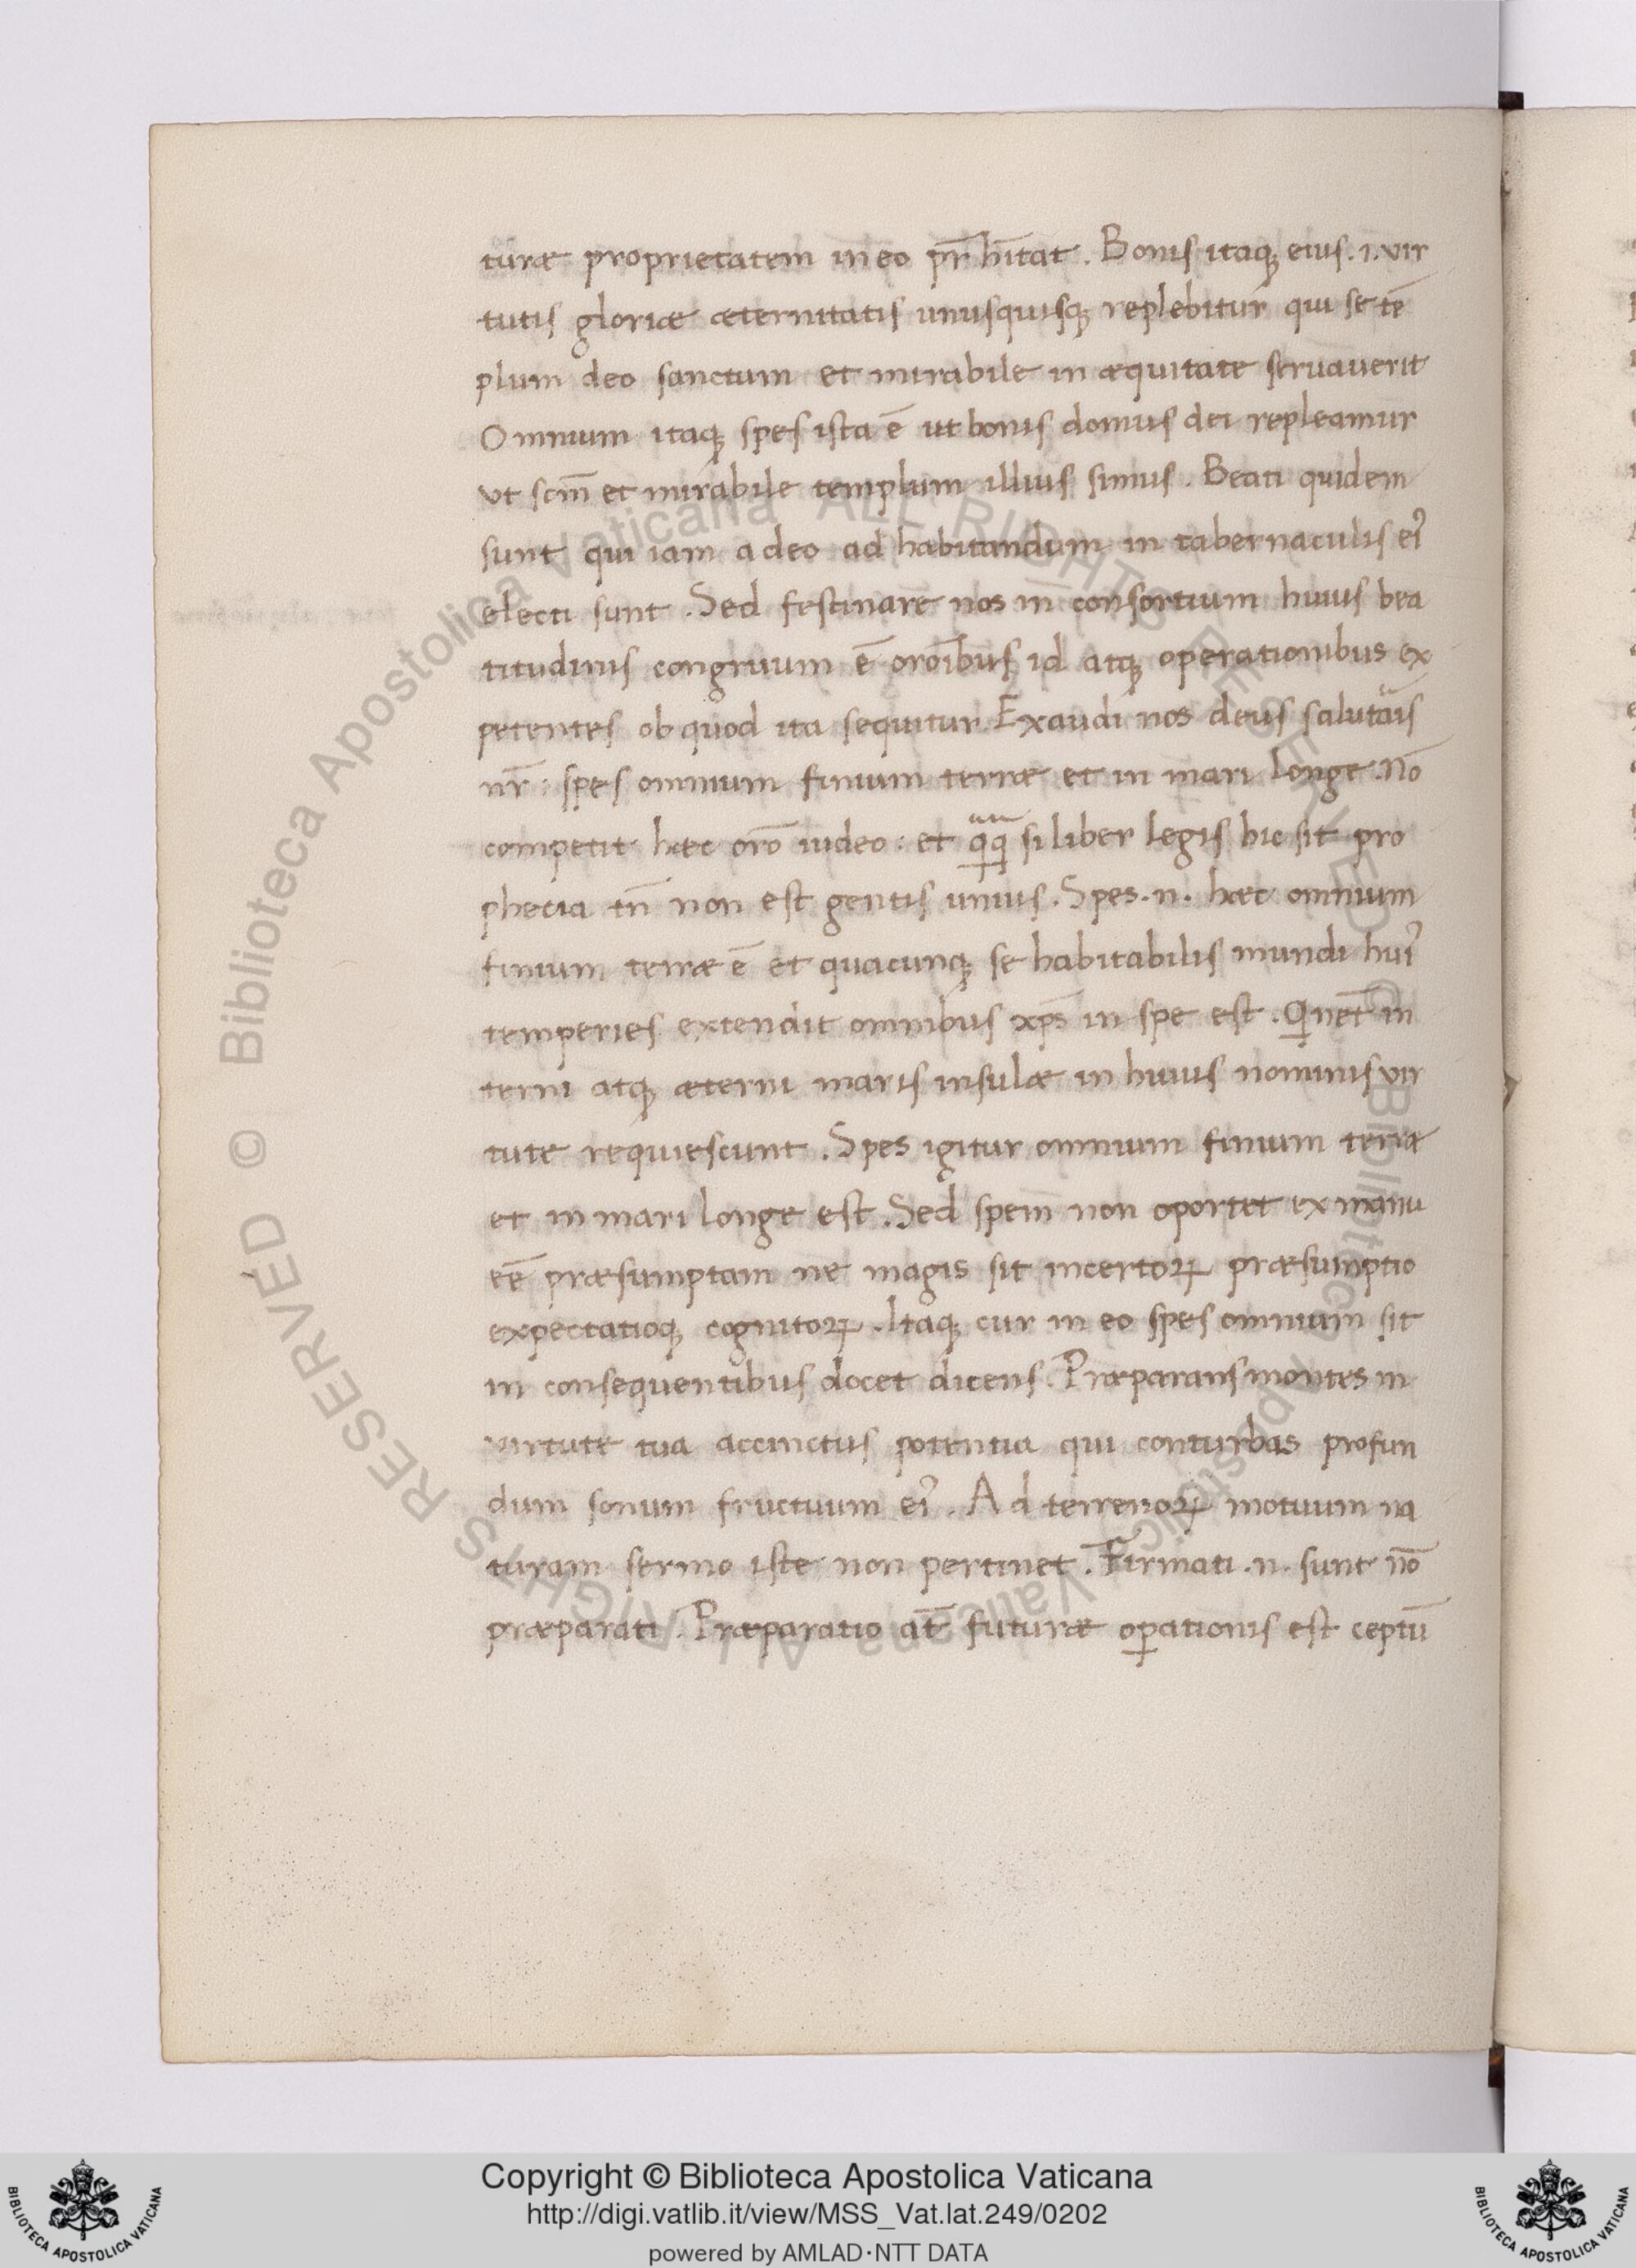 turæ proprietatem in eo pr̄ hītat. Bonis itaq; eius .i. vir
tutis gloriæ æternitatis unusquisq; replebitur qui se tē
plum deo sanctum et mirabile in æquitate servaverit
Omnium itaq; spes ista ē ut bonis domus dei repleamur
ut scm̄ et mirabile templum illius simus. Beati quidem
sunt qui iam a deo ad habitandum in tabernaculis ei᾽
electi sunt. Sed festinare nos in consortium huius bea
titudinis congruum ē orōibus id atq; operationibus ex
petentes ob quod ita sequitur. Exaudi nos deus salutaͣis
nr̄: spes omnium finium terræ et in mari longe. Nō
competit hæc orō iudeo: et qͣqͣ si liber legis hic sit pro
phecia tn̄ non est gentis unius. Spes .n. hæc omnium
finium terræ ē et quacunq; se habitabilis mundi hui᾽
temperies extendit omnibus xp̄s in spe est. Qinet̄ in
terni atq; æterni maris insulæ in huius nominis vir
tute requiescunt. Spes igitur omnium finium terræ
et in mari longe est. Sed spem non oportet ex manu
eē præsumptam ne magis sit incertoꝝ præsumptio
expectatioq; cognitoꝝ. Itaq; cur in eo spes omnium sit
in consequentibus docet dicens. Præparans montes in
virtute tua accinctus potentia qui conturbas profun
dum sonum fructuum ei᾽. Ad terrenoꝝ motuum na
turam sermo iste non pertinet. Firmati .n. sunt nō
præparati. Præparatio at̄ futuræ oꝑationis est ceptū
Copyright © Biblioteca Apostolica Vaticana
http://digi.vatlib.it/view/MSS_Vat.lat.249/0202
powered by AMLAD·NTT DATA
BIBLIOTECA APOSTOLICA VATICANA
BIBLIOTECA APOSTOLICA VATICANA
© Biblioteca Apostolica Vaticana ALL RIGHTS RESERVED © Biblioteca Apostolica Vaticana ALL RIGHTS RESERVED